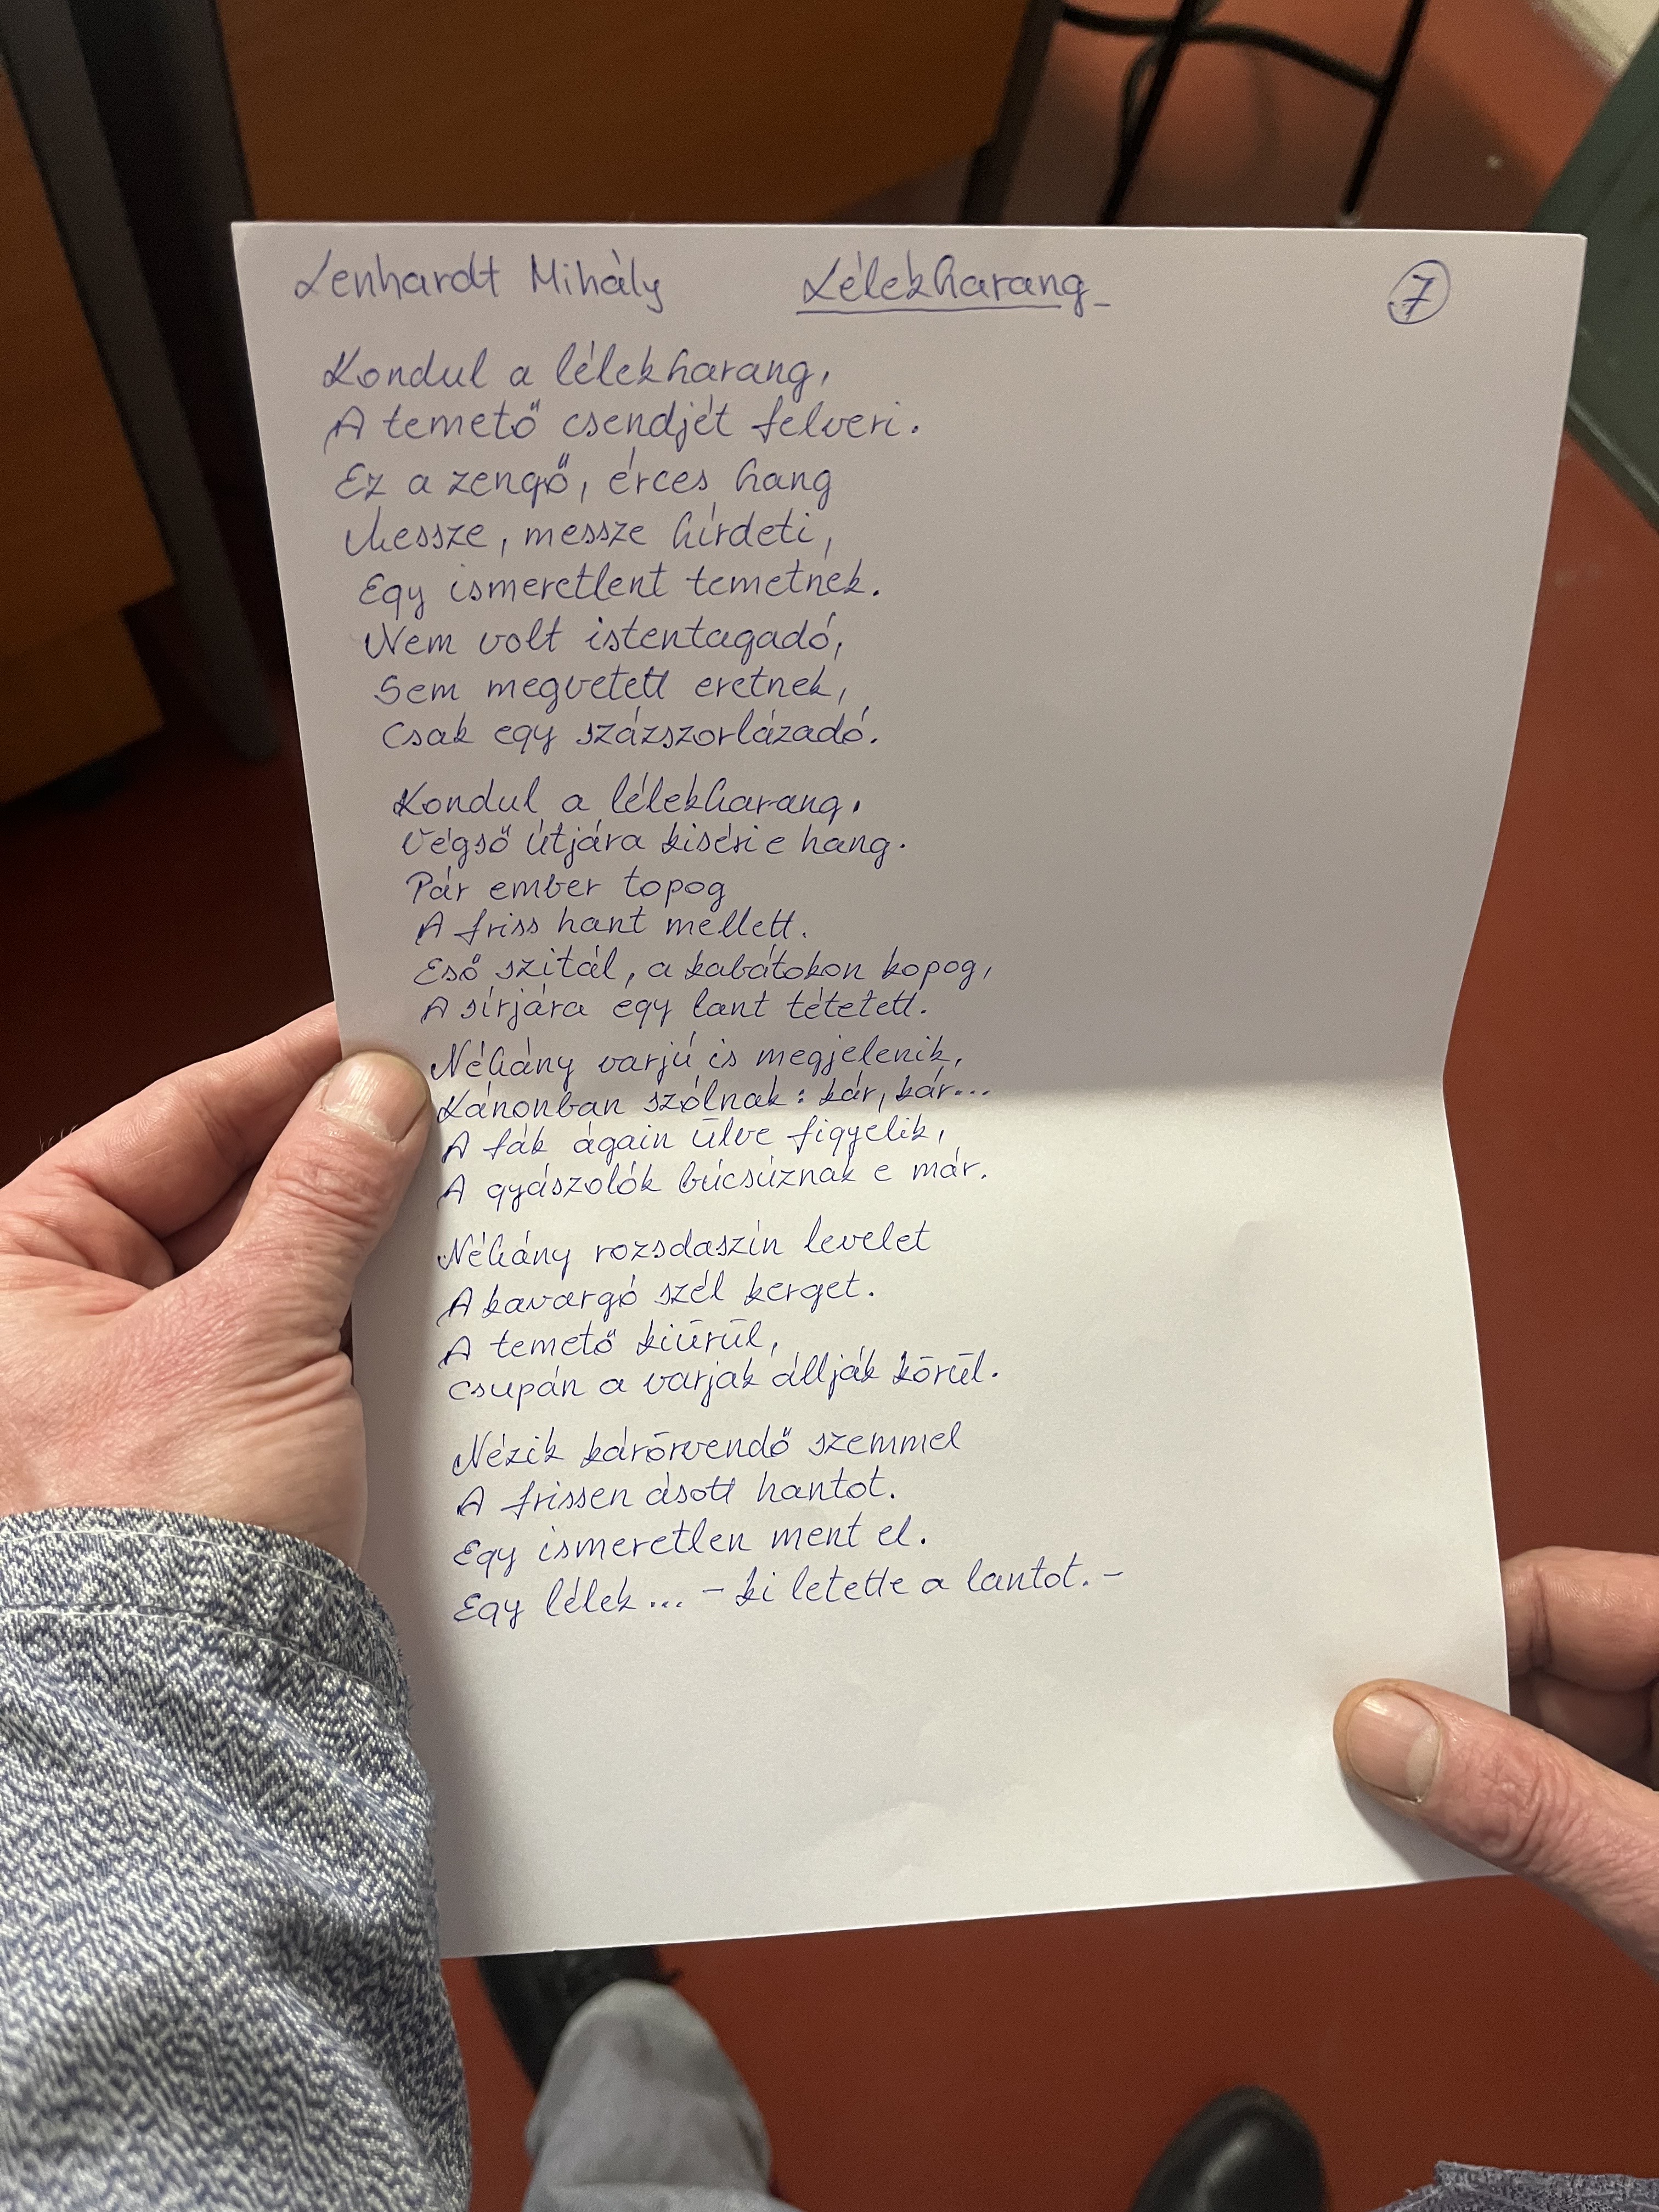 Lenhardt Mihály Lélekharang 7
Kondul a lélekharang,
A temető csendjét felveri.
Ez a zengő, érces hang
Messze, messze hírdeti,
Egy ismeretlent temetnek.
Nem volt istentagadó,
Sem megvetett eretnek,
Csak egy százszorlázadó.
Kondul a lélekharang.
Végső útjára kiséri e hang.
Pár ember topog
A friss hant mellett.
Eső szitál, a kabátokon kopog,
A sírjára egy lant tétetett.
Néhány varjú is megjelenik,
Kánonban szólnak: kár, kár...
A fák ágain ülve figyelik,
A gyászolók búcsúznak e már.
Néhány rozsdaszín levelet
A kavargó szél kerget.
A temető kiürül,
Csupán a varjak állják körül.
Nézik kárörvendő szemmel
A frissen ásott hantot.
Egy ismeretlen ment el.
Egy lélek... - ki letette a lantot. -